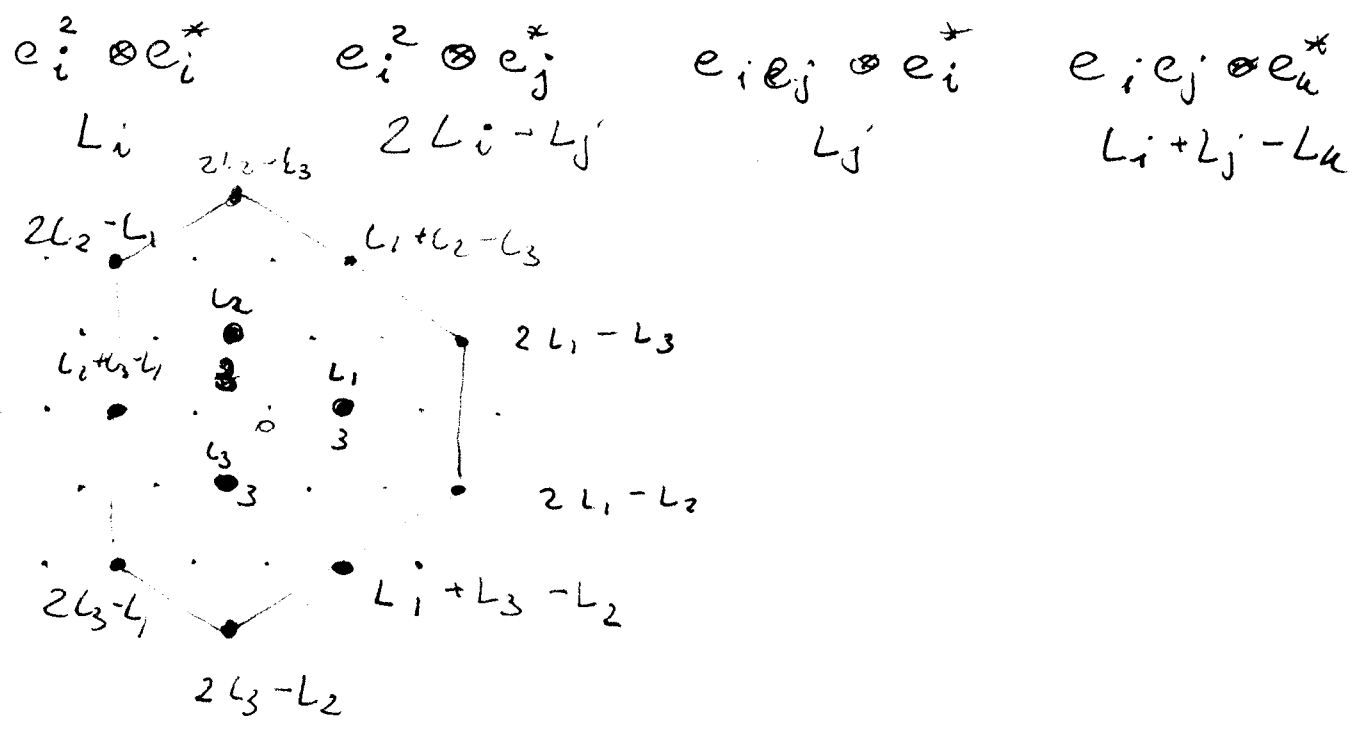 e_i^2 ⊗ e_i^* e_i^2 ⊗ e_j^* e_i e_j ⊗ e_i^* e_i e_j ⊗ e_k^*
L_i 2L_i - L_j L_j L_i + L_j - L_k
2L_2 - L_3
2L_2 - L_1 L_1 + L_2 - L_3
L_2
2L_1 - L_3
L_2 + L_3 - L_1 3 L_1
0
3
L_3
3 2L_1 - L_2
2L_3 - L_1 L_1 + L_3 - L_2
2L_3 - L_2